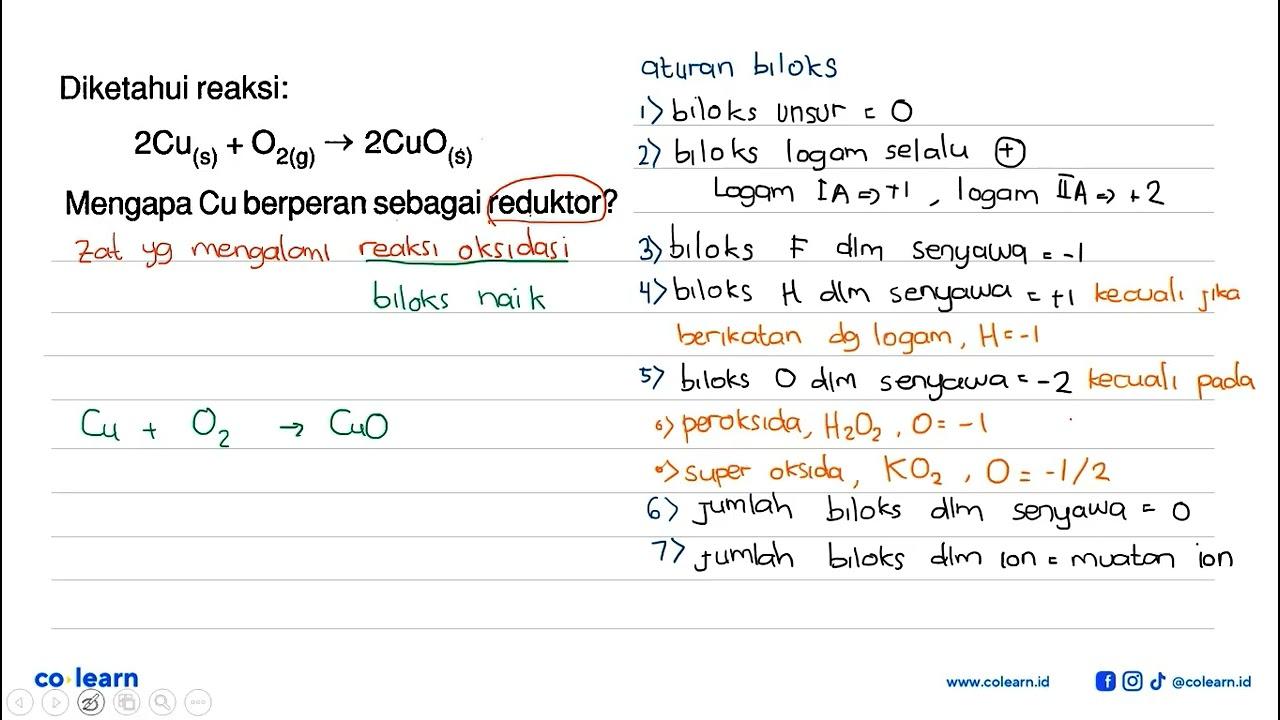 Diketahui reaksi:
2Cu(s) + O2(g) → 2CuO(s)
Mengapa Cu berperan sebagai reduktor?
Zat yg mengalami reaksi oksidasi
biloks naik
Cu + O2 → CuO
aturan biloks
1) biloks unsur = 0
2) biloks logam selalu +
Logam IA => +1, logam IIA => +2
3) biloks F dlm senyawa = -1
4) biloks H dlm senyawa = +1 kecuali jika
berikatan dg logam, H = -1
5) biloks O dlm senyawa = -2 kecuali pada
°) peroksida, H2O2, O = -1
°) super oksida, KO2, O = -1/2
6) jumlah biloks dlm senyawa = 0
7) jumlah biloks dlm ion = muatan ion
co learn
www.colearn.id
@colearn.id